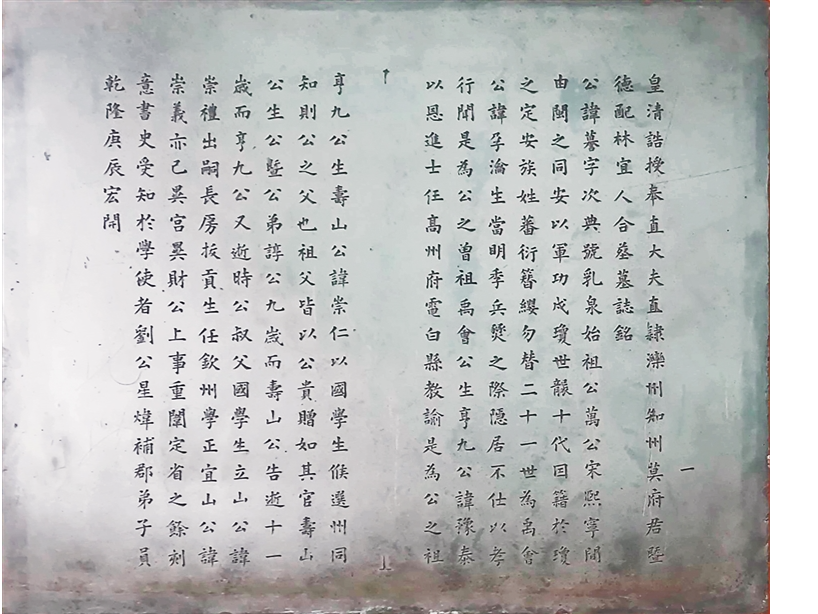 皇清誥授奉直大夫直隸灤州知州莫府君暨
德配林宜人合墓墓誌銘
公諱蓦字次典號乳泉始祖公萬公宋熙寧間
由閩之同安以軍功戍瓊世襲十代回籍於瓊
之定安族姓蕃衍簪纓勿替二十一世為禹會
公諱孕瀹生當明季兵燹之際隱居不仕以孝
行聞是為公之曾祖禹會公生亨九公諱豫泰
以恩進士任高州府電白縣教諭是為公之祖
一
亨九公生壽山公諱崇仁以國學生候選州同
知則公之父也祖父皆以公貴贈如其官壽山
公生公暨公弟諄公九歲而壽山公告逝十一
歲而亨九公又逝時公叔父國學生立山公諱
崇禮出嗣長房拔貢生任欽州學正宜山公諱
崇義亦已異宮異財公上事重闈定省之餘刻
意書史受知於學使者劉公星煒補郡弟子員
乾隆庚辰宏開